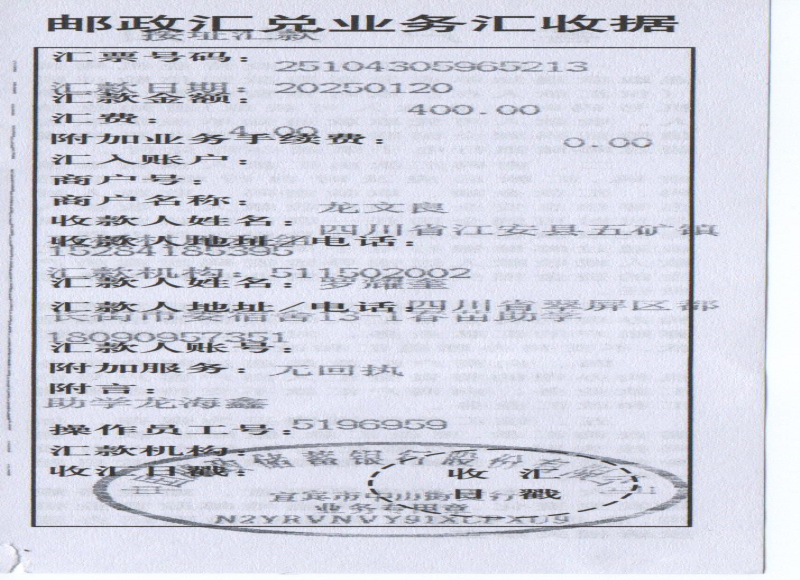 邮政汇兑业务汇收据
按址汇款
汇票号码：
25104305965213
汇款日期：20250120
汇款金额：
400.00
汇费：
4.00
附加业务手续费：
0.00
汇入账户：
商户号：
商户名称：
龙文良
收款人姓名：
四川省江安县五矿镇
收款人地址/电话：
15284185395
汇款机构：511502002
汇款人姓名：罗耀奎
汇款人地址/电话：四川省翠屏区都
长街市委宿舍13
助学
18090957351
汇款人账号：
附加服务：无回执
附言：
助学龙海鑫
操作员工号：5196959
汇款机构：
收汇日戳：
收汇
日戳
业务专用章